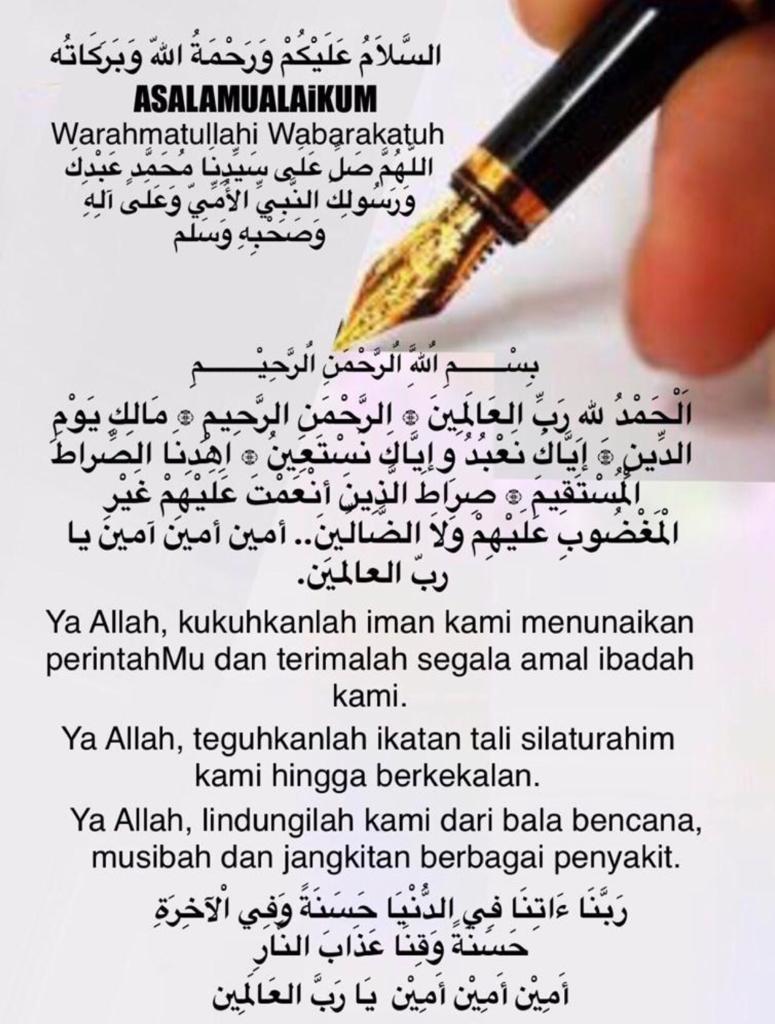 السَّلاَمُ عَلَيْكُمْ وَرَحْمَةُ اللهِ وَبَرَكَاتُه
ASALAMUALAiKUM
Warahmatullahi Wabarakatuh
اللَّهُمَّ صَلِّ عَلَى سَيِّدِنَا مُحَمَّدٍ عَبْدِكَ
وَرَسُولِكَ النَّبِيِّ الأُمِّيِّ وَعَلَى آلِهِ
وَصَحْبِهِ وَسَلم
بِسْــــمِ اللَّهِ الرَّحْمَنِ الرَّحِيْــــمِ
اَلْحَمْدُ لله رَبِّ العَالَمِينَ ۞ الرَّحْمَنِ الرَّحِيمِ ۞ مَالِكِ يَوْمِ
الدِّينِ ۞ إِيَّاكَ نَعْبُدُ وإِيَّاكَ نَسْتَعِينُ ۞ اِهْدِنَا الصِّرَاطَ
المُسْتَقِيمَ ۞ صِرَاطَ الَّذِينَ أَنْعَمْتَ عَلَيْهِمْ غَيْرِ
الْمَغْضُوبِ عَلَيْهِمْ وَلاَ الضَّالِّينَ.. أمين أمين آمين يا
ربّ العالمين.
Ya Allah, kukuhkanlah iman kami menunaikan
perintahMu dan terimalah segala amal ibadah
kami.
Ya Allah, teguhkanlah ikatan tali silaturahim
kami hingga berkekalan.
Ya Allah, lindungilah kami dari bala bencana,
musibah dan jangkitan berbagai penyakit.
رَبَّنَا ءَاتِنَا فِي الدُّنْيَا حَسَنَةً وَفِي الْآخِرَةِ
حَسَنَةً وَقِنَا عَذَابَ النَّارِ
أَمِيْن أَمِيْن أَمِيْن يَا رَبَّ العَالَمِين